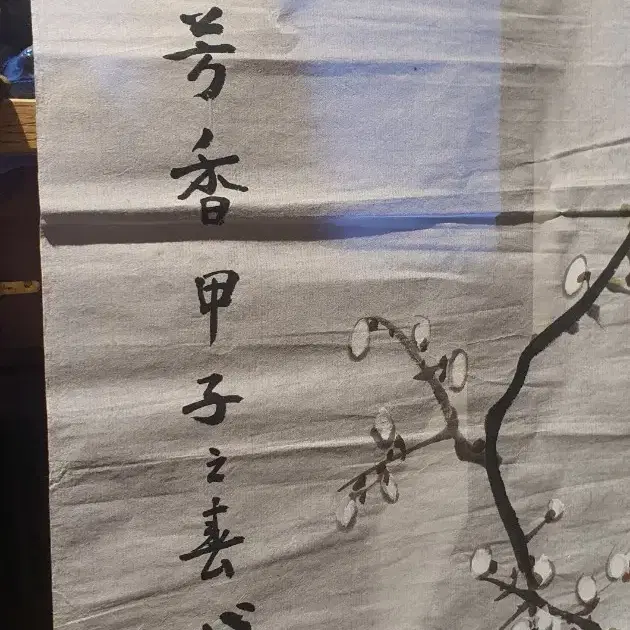 芳香甲子之春